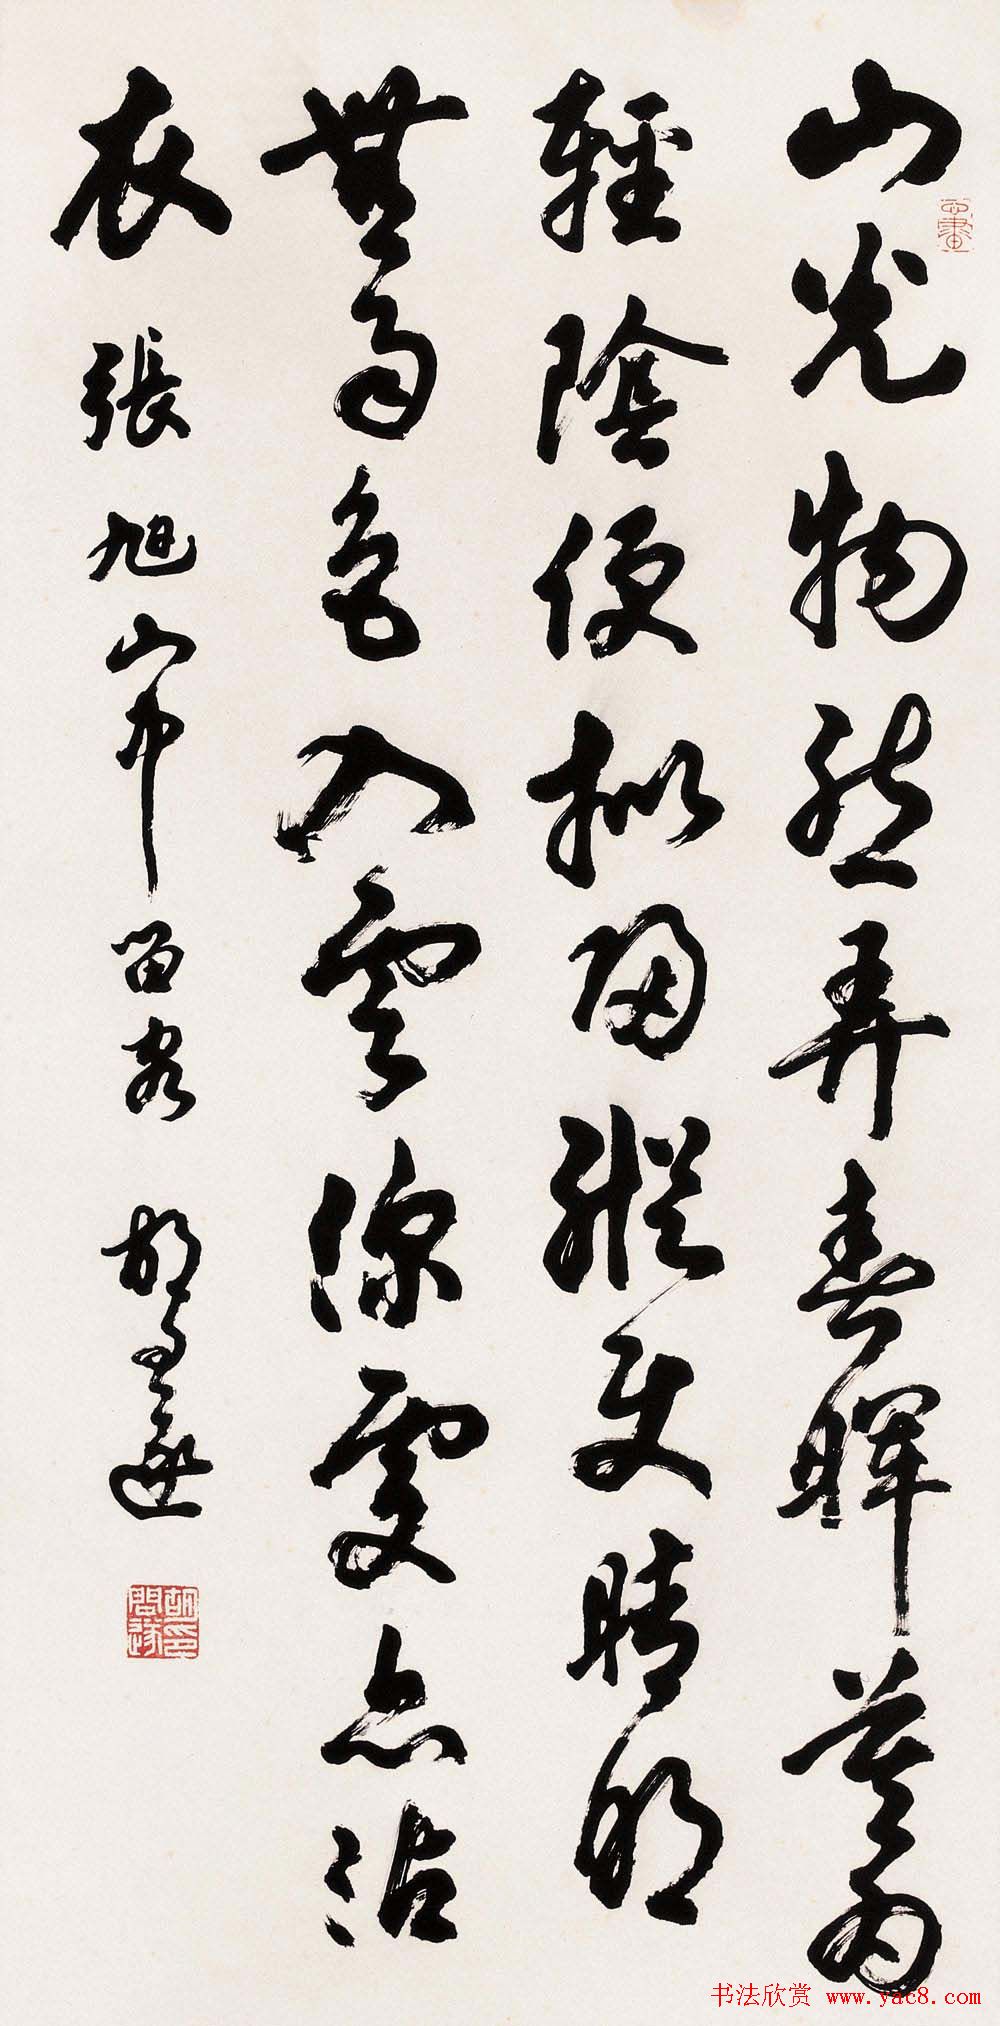 山光物態弄春暉莫為
輕陰便拟歸縱使晴明
無雨色入雲深處亦沾
衣 張旭山中留客 胡問遂
胡印問遂
书法欣赏 www.yac8.com